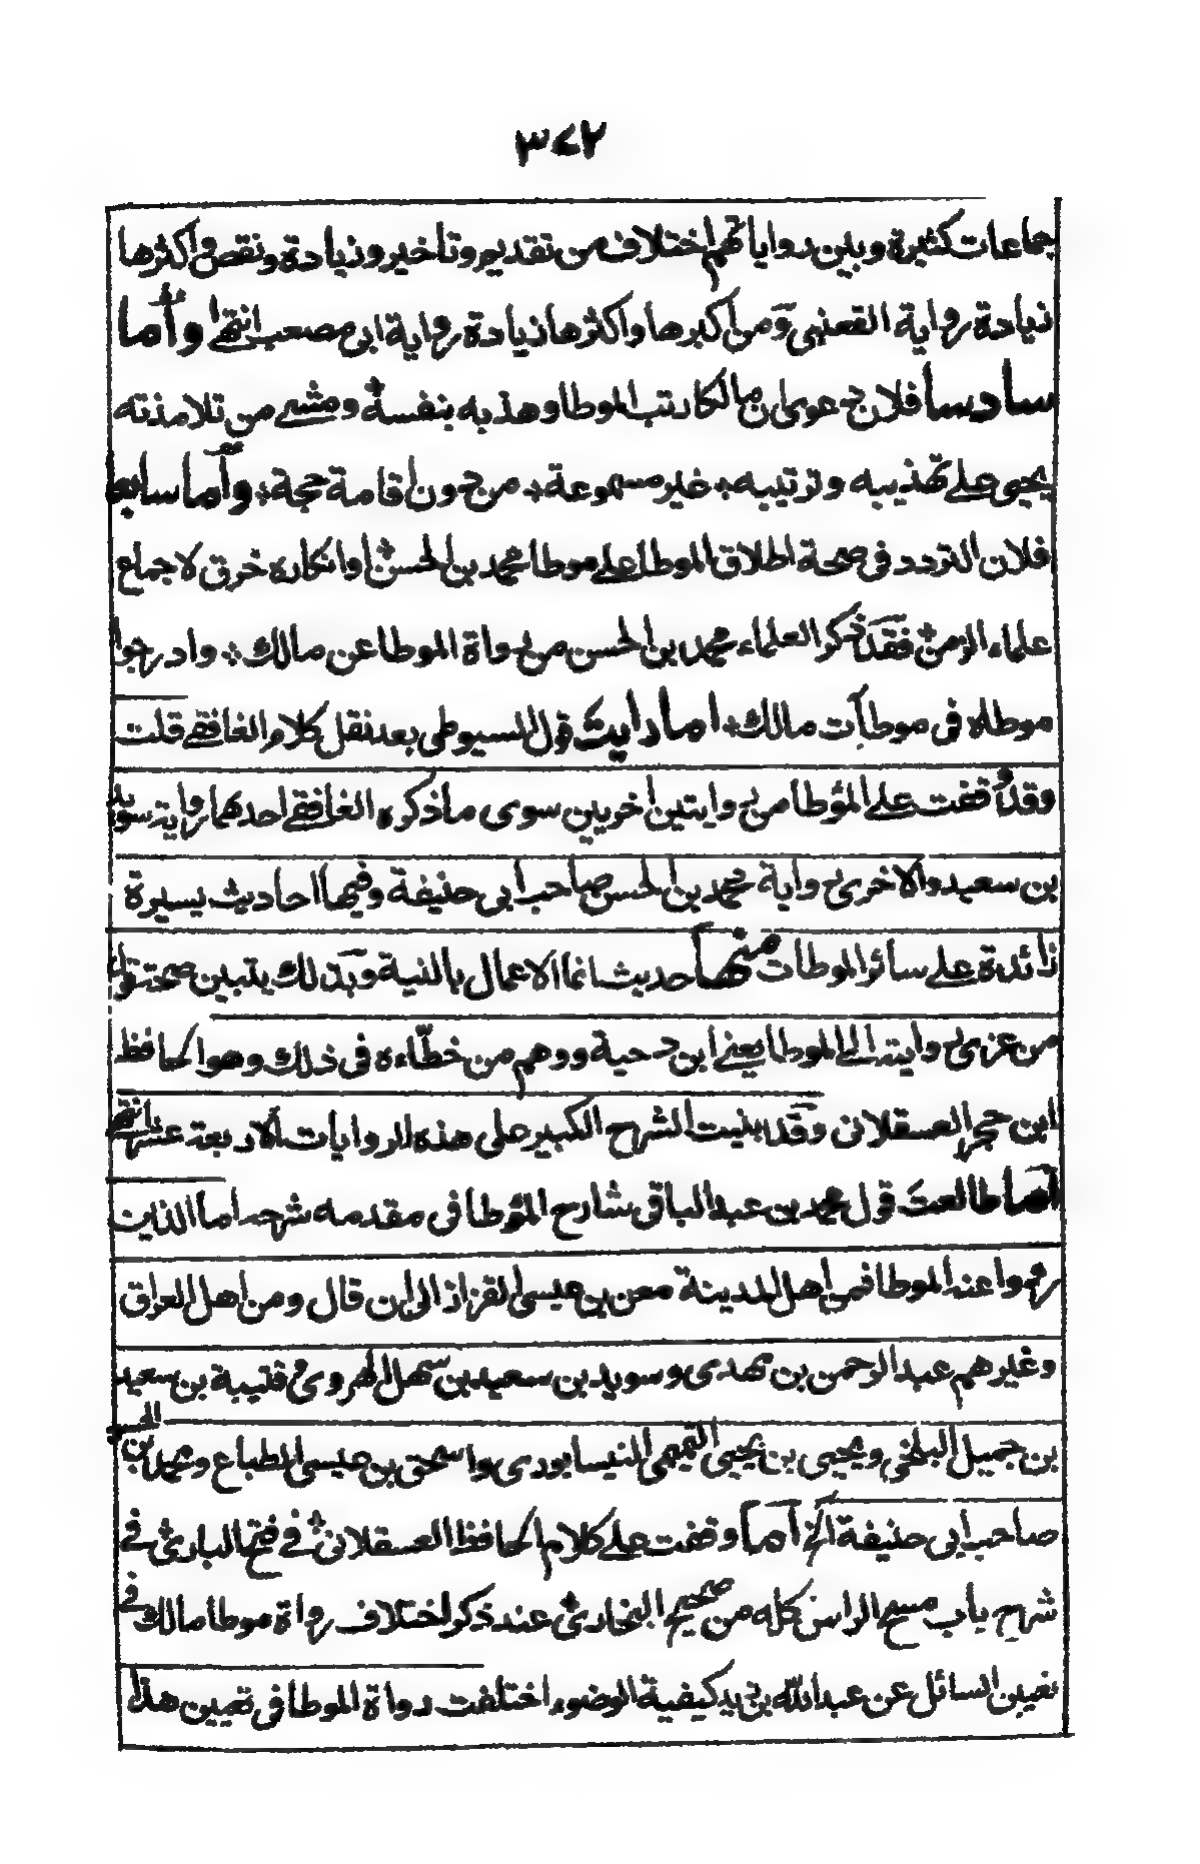 ٣٧٢
جماعات كثيرة وبين رواياتهم اختلاف من تقديم وتاخير وزيادة ونقص واكثرها
زيادة رواية القعنبي ومن اكبرها واكثرها زيادة رواية ابي مصعب انتهى واما
سادسا فلان دعوى ان مالكا رتب الموطا وهذبه بنفسه ومشى من تلامذته
يحيى على تهذيبه وترتيبه غير مسموعة من دون اقامة حجة واما سابعا
فلان التردد في صحة اطلاق الموطا على موطا محمد بن الحسن او انكاره خرق لاجماع
علماء الزمن فقد ذكر العلماء محمد بن الحسن من رواة الموطا عن مالك وادرجوا
موطاه في موطآت مالك اما رايت قول السيوطي بعد نقل كلام الغافقي قلت
وقد وقفت على المؤطا من روايتين اخريين سوى ما ذكره الغافقي احدهما رواية سويد
بن سعيد والاخرى رواية محمد بن الحسن صاحب ابي حنيفة وفيها احاديث يسيرة
زائدة على سائر الموطات منها حديث انما الاعمال بالنية وبذلك يتبين صحة قول
من عزى روايته الى الموطا يعني ابن دحية ووهم من خطاءه في ذلك وهو الحافظ
ابن حجر العسقلاني وقد بنيت الشرح الكبير على هذه الروايات الاربعة عشر انتهى
اما طالعت قول محمد بن عبد الباقي شارح المؤطا في مقدمه شرحه اما الذين
رووا عنه الموطا فمن اهل المدينة معن بن عيسى القزاز الى ان قال ومن اهل العراق
وغيرهم عبد الرحمن بن مهدى وسويد بن سعيد بن سهل الهروى وقتيبة بن سعيد
بن جميل البلخي ويحيى بن يحيى التميمي النيسابورى واسحق بن عيسى الطباع ومحمد بن الحسن
صاحب ابي حنيفة الخ اما وقفت على كلام الحافظ العسقلاني في فتح البارى في
شرح باب مسح الراس كله من صحيح البخارى عند ذكر اختلاف رواة موطا مالك في
تعيين السائل عن عبد الله بن زيد كيفية الوضوء اختلفت رواة الموطا في تعيين هذا